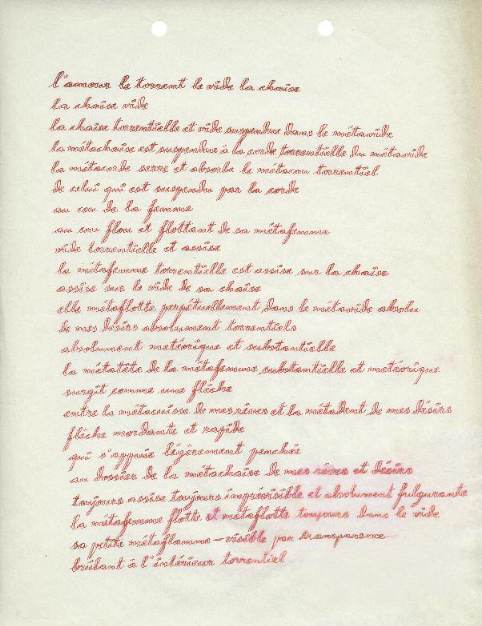 l'amour le torrent le vide la chaise
la chaise vide
la chaise torrentielle et vide suspendue dans le métavide
la métachaise est suspendue à la corde torrentielle du métavide
la métacorde serre et absorbe le métacou torrentiel
de celui qui est suspendu par la corde
au cou de la femme
au cou flou et flottant de sa métafemme
vide torrentielle et assise
la métafemme torrentielle est assise sur la chaise
assise sur le vide de sa chaise
elle métaflotte perpétuellement dans le métavide absolu
de mes désirs absolument torrentiels
absolument météorique et substantielle
la métatête de la métafemme substantielle et météorique
surgit comme une flèche
entre la métacuisse de mes rêves et la métadent de mes désirs
flèche mordante et rapide
qui s'appuie légèrement penchée
au dossier de la métachaise de mes rêves et désirs
toujours assise toujours imprévisible et absolument fulgurante
la métafemme flotte et métaflotte toujours dans le vide
sa petite métaflamme – visible par transparence
brûlant à l'intérieur torrentiel